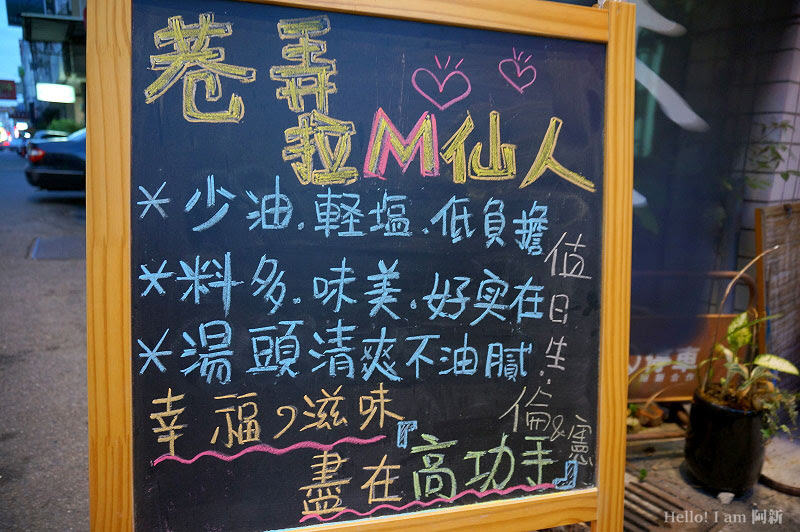 巷弄
拉M仙人
*少油.輕塩.低負擔
*料多.味美.好实在
*湯頭清爽不油膩.
幸福の滋味
盡在『高功手』
值日生.倫&憲
停車
Hello! I am 阿新